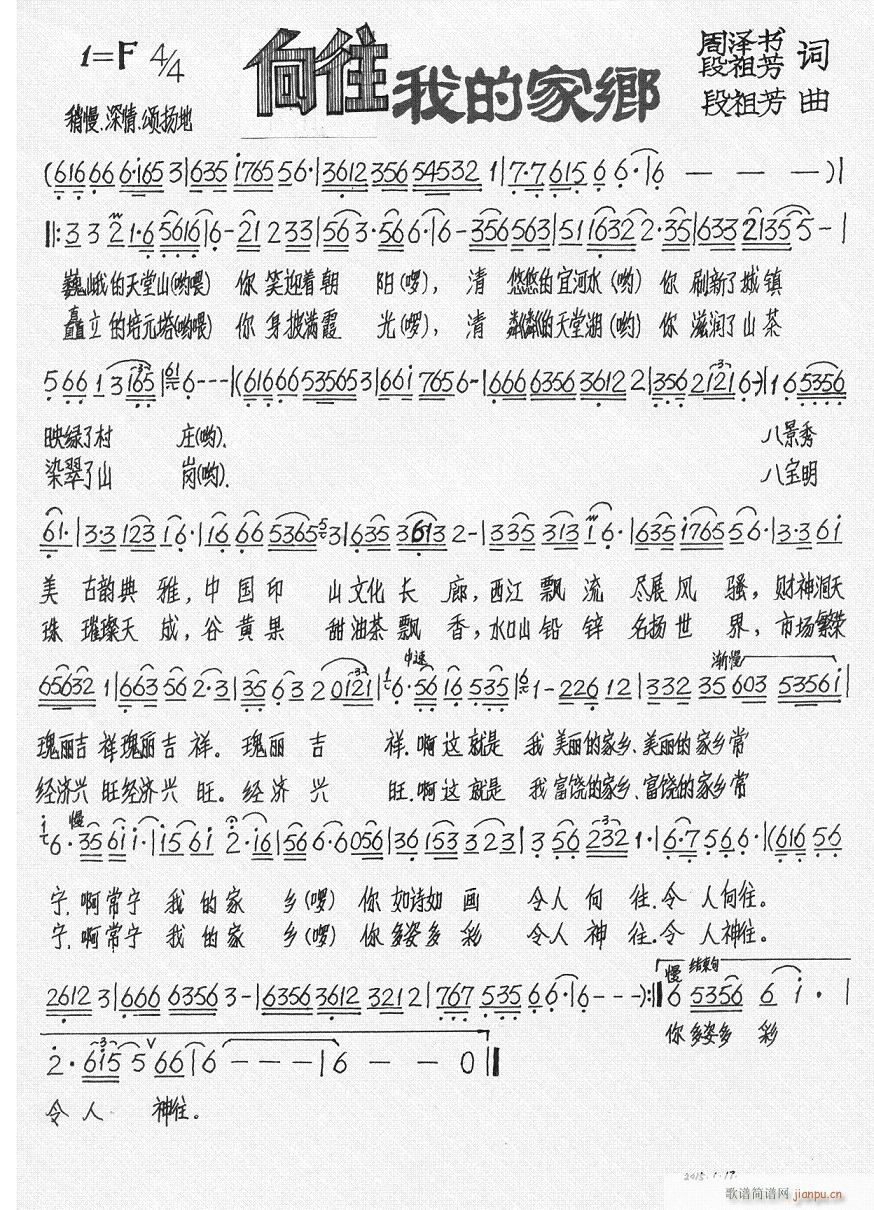 向往我的家鄉
1=F 4/4
周泽书 段祖芳 词
段祖芳 曲
稍慢.深情.颂扬地
(616 66 6·i65 3|635 i765 56·|3612 356 54532 1|7·7 615 6 6·|6 — — —)|
‖:3 3 2 1·6 5616|6-21 2 33|563·566·|6-356563|51 1632 2·35|633 2135 5-|
巍峨的天堂山(哟喂) 你 笑迎着朝 阳(啰), 清 悠悠的宜河水(哟) 你 刷新了城镇
矗立的培元塔(哟喂) 你 身披满霞 光(啰), 清 粼粼的天堂湖(哟) 你 滋润了山茶
5 66 1 3 165|6---|(616 66 535653|66i 7656-|666 6356 3612 2|356 2121 6-)|1 6 5356
映绿了村 庄(哟). 八景秀
染翠了山 岗(哟). 八宝明
61·|3·3 123 16·|16 66 5365 3|635 3613 2-|335 313 i6·|635 i765 56·|3·3 6i
美 古韵典 雅,中 国 印 山文化 长 廊,西江 飘 流 尽展 风 骚,财神洞天
珠 璀璨天 成,谷 黄 果 甜油茶 飘 香,水口山 铅 锌 名扬 世 界,市场繁荣
中速 渐慢
65632 1|663 56 2·3|35 6 3 2 0121|6·56 16 535|1-226 12|332 35 603 5356i|
瑰丽吉 祥瑰丽吉 祥。 瑰丽 吉 祥.啊 这 就是 我 美丽的家乡、美丽的家乡常
经济兴 旺经济兴 旺。 经济 兴 旺.啊 这 就是 我 富饶的家乡、富饶的家乡常
慢
6·35 6i i·|i5 6i 2·i6|56 6·6056|36 153 323|3 56 232 1·|6·7 56 6·|(616 56
宁,啊常宁 我 的 家 乡(啰) 你 如诗如 画 令人 向 往.令 人向往。
宁,啊常宁 我 的 家 乡(啰) 你多姿多 彩 令人 神 往.令 人神往。
慢 结束句
2612 3|666 6356 3-|6356 3612 3212 2|767 535 66·|6---):‖6 5356 6 i·|
你多姿多 彩
2·6i5 5 V 66|6 — — —|6 — — 0‖
令 人 神往。
2015.1.17.
歌谱简谱网 jianpu.cn